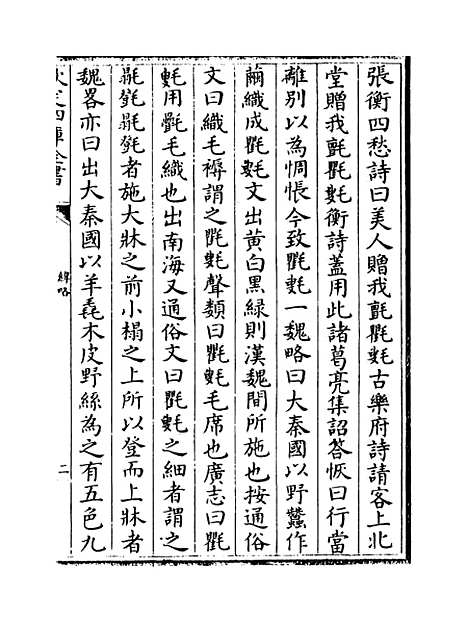 張衡四愁詩曰美人贈我氈氍毹古樂府詩請客上北
堂贈我氈氍毹衡詩蓋用此諸葛亮集詔答恢曰行當
離別以為惆悵今致氍毹一魏略曰大秦國以野蠶作
繭織成氍毹文出黃白黑綠則漢魏間所施也按通俗
文曰織毛褥謂之氍毹聲類曰氍毹毛席也廣志曰氍
毹用氍毛織也出南海又通俗文曰氍毹之細者謂之
毾㲪毾㲪者施大牀之前小榻之上所以登而上牀者
魏畧亦曰出大秦國以羊毳木皮野絲為之有五色九
欽定四庫全書
緯略
二